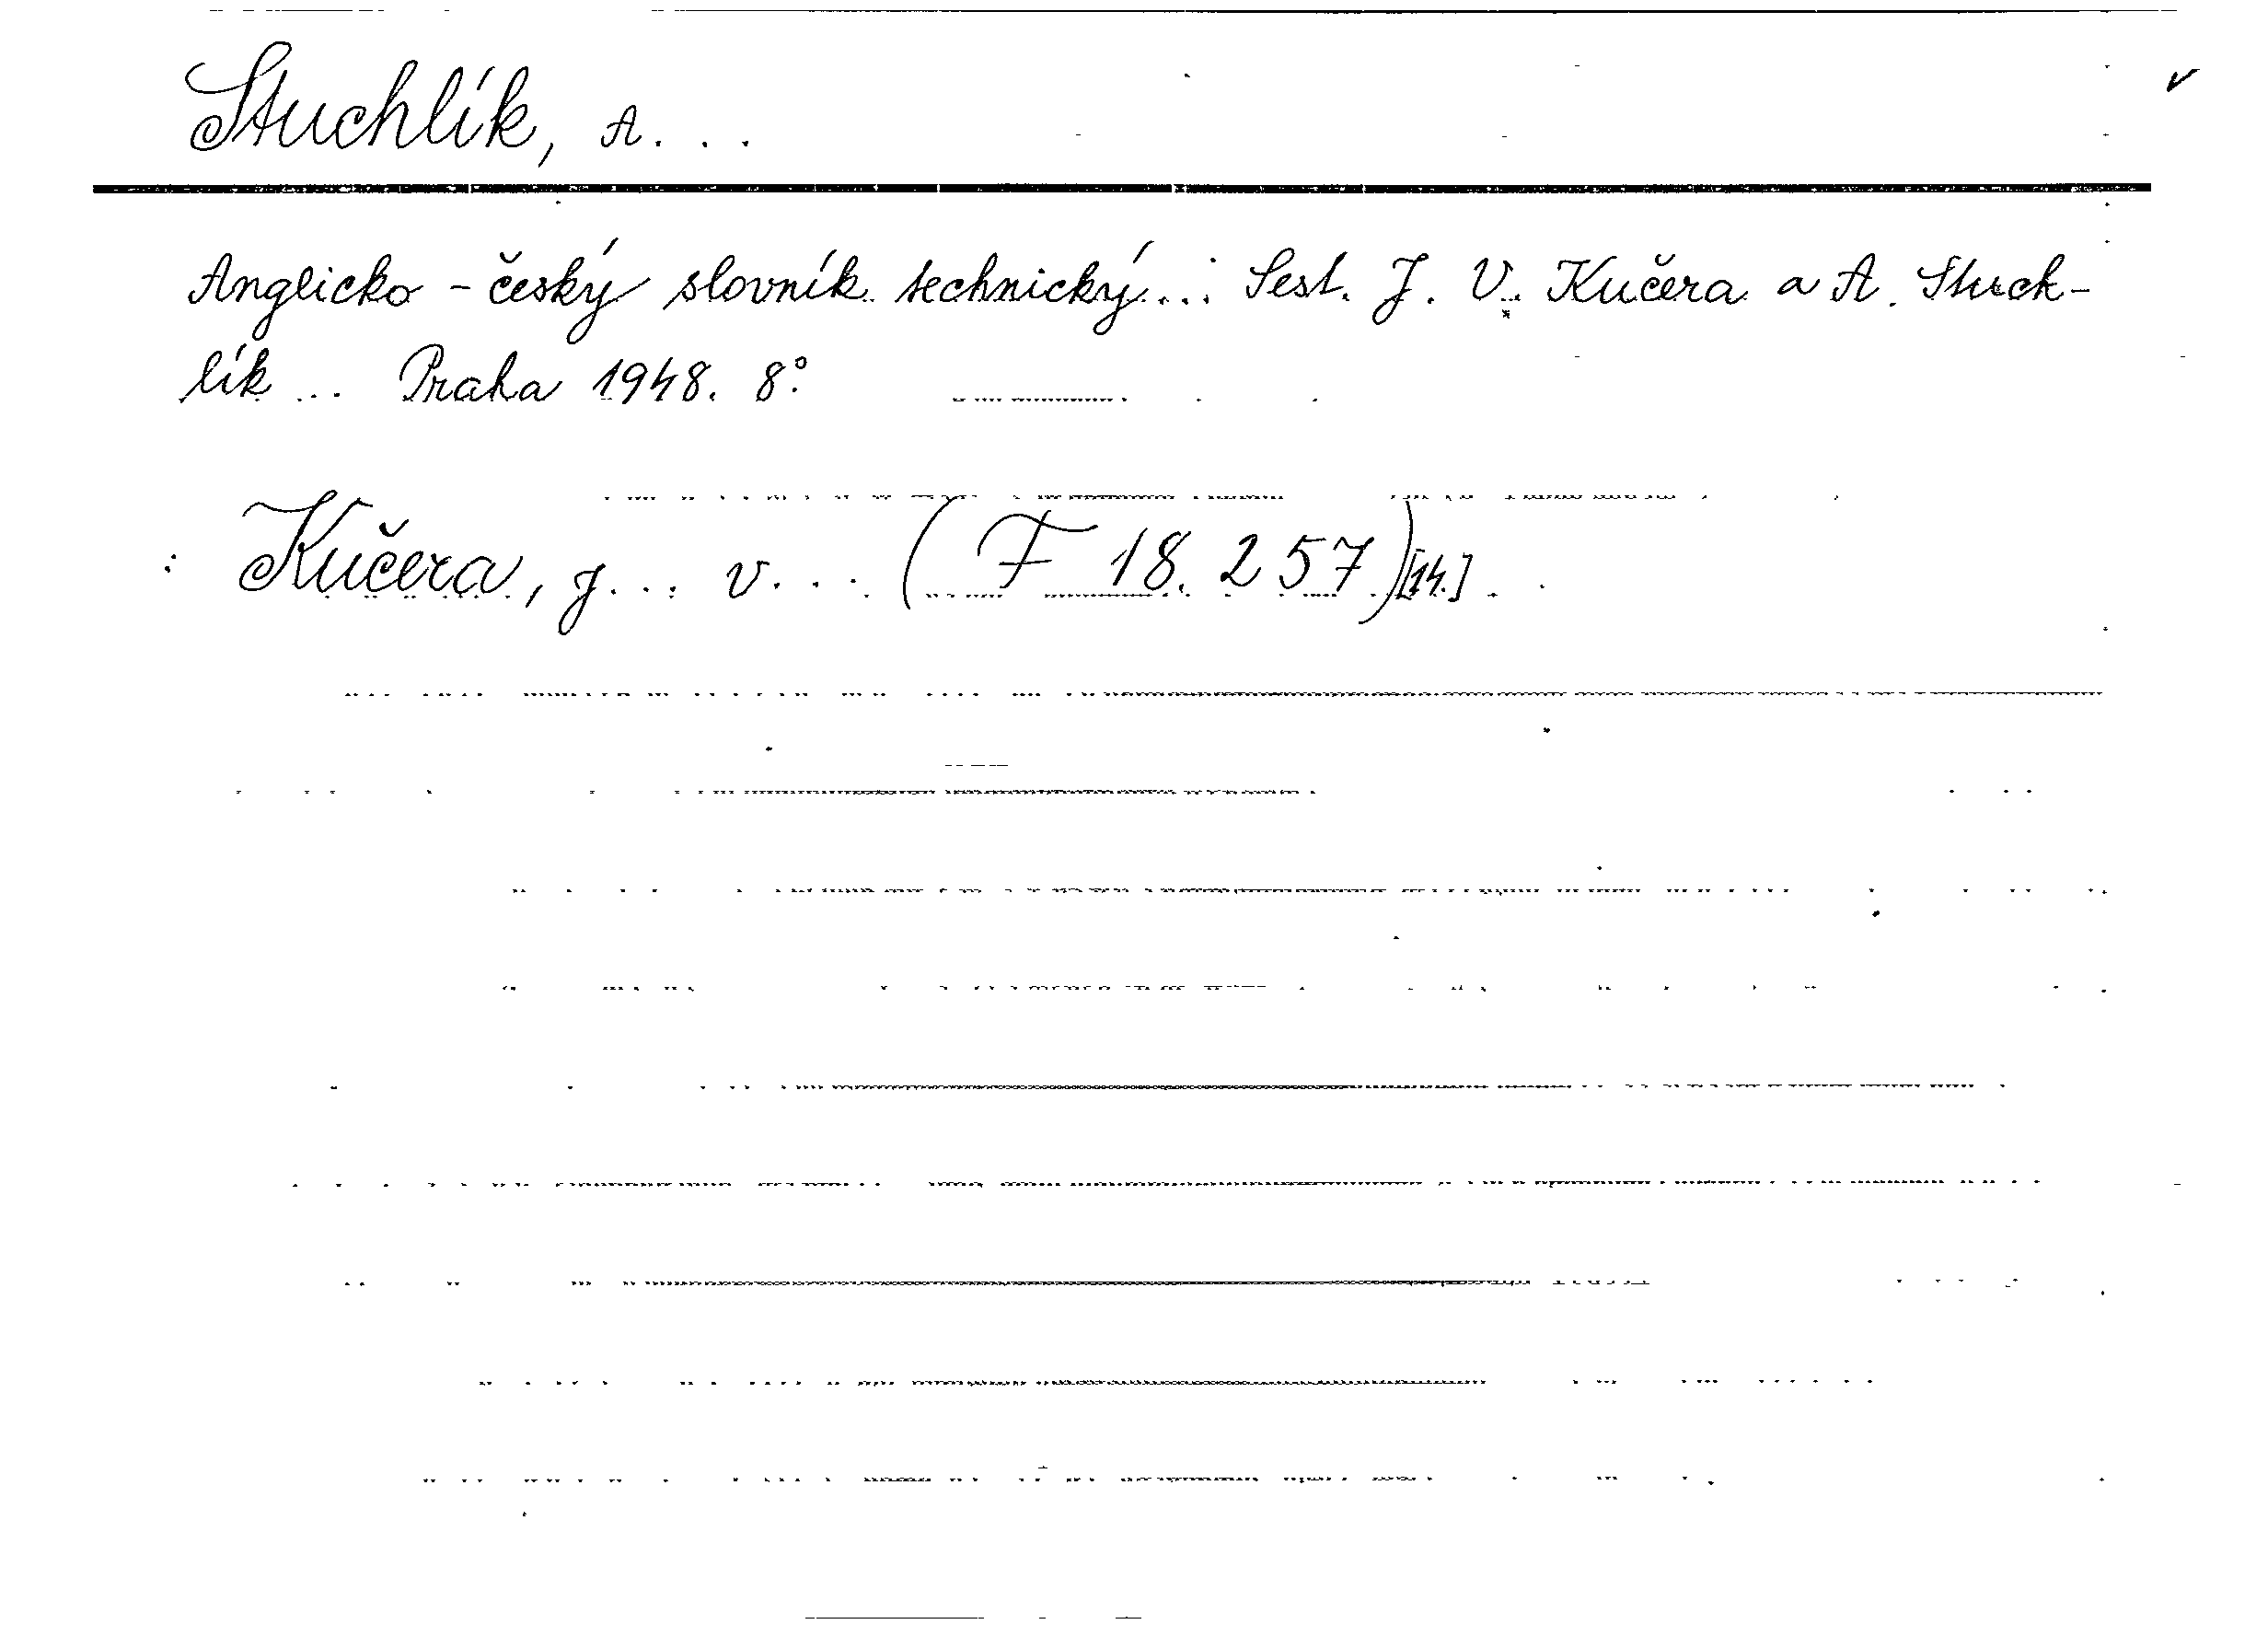 Stuchlík, A...
Anglicko-český slovník technický... Sest. J. V. Kučera a A. Stuch-
lík ... Praha 1948. 8°.
: Kučera, J... V... (F 18.257) [14.]